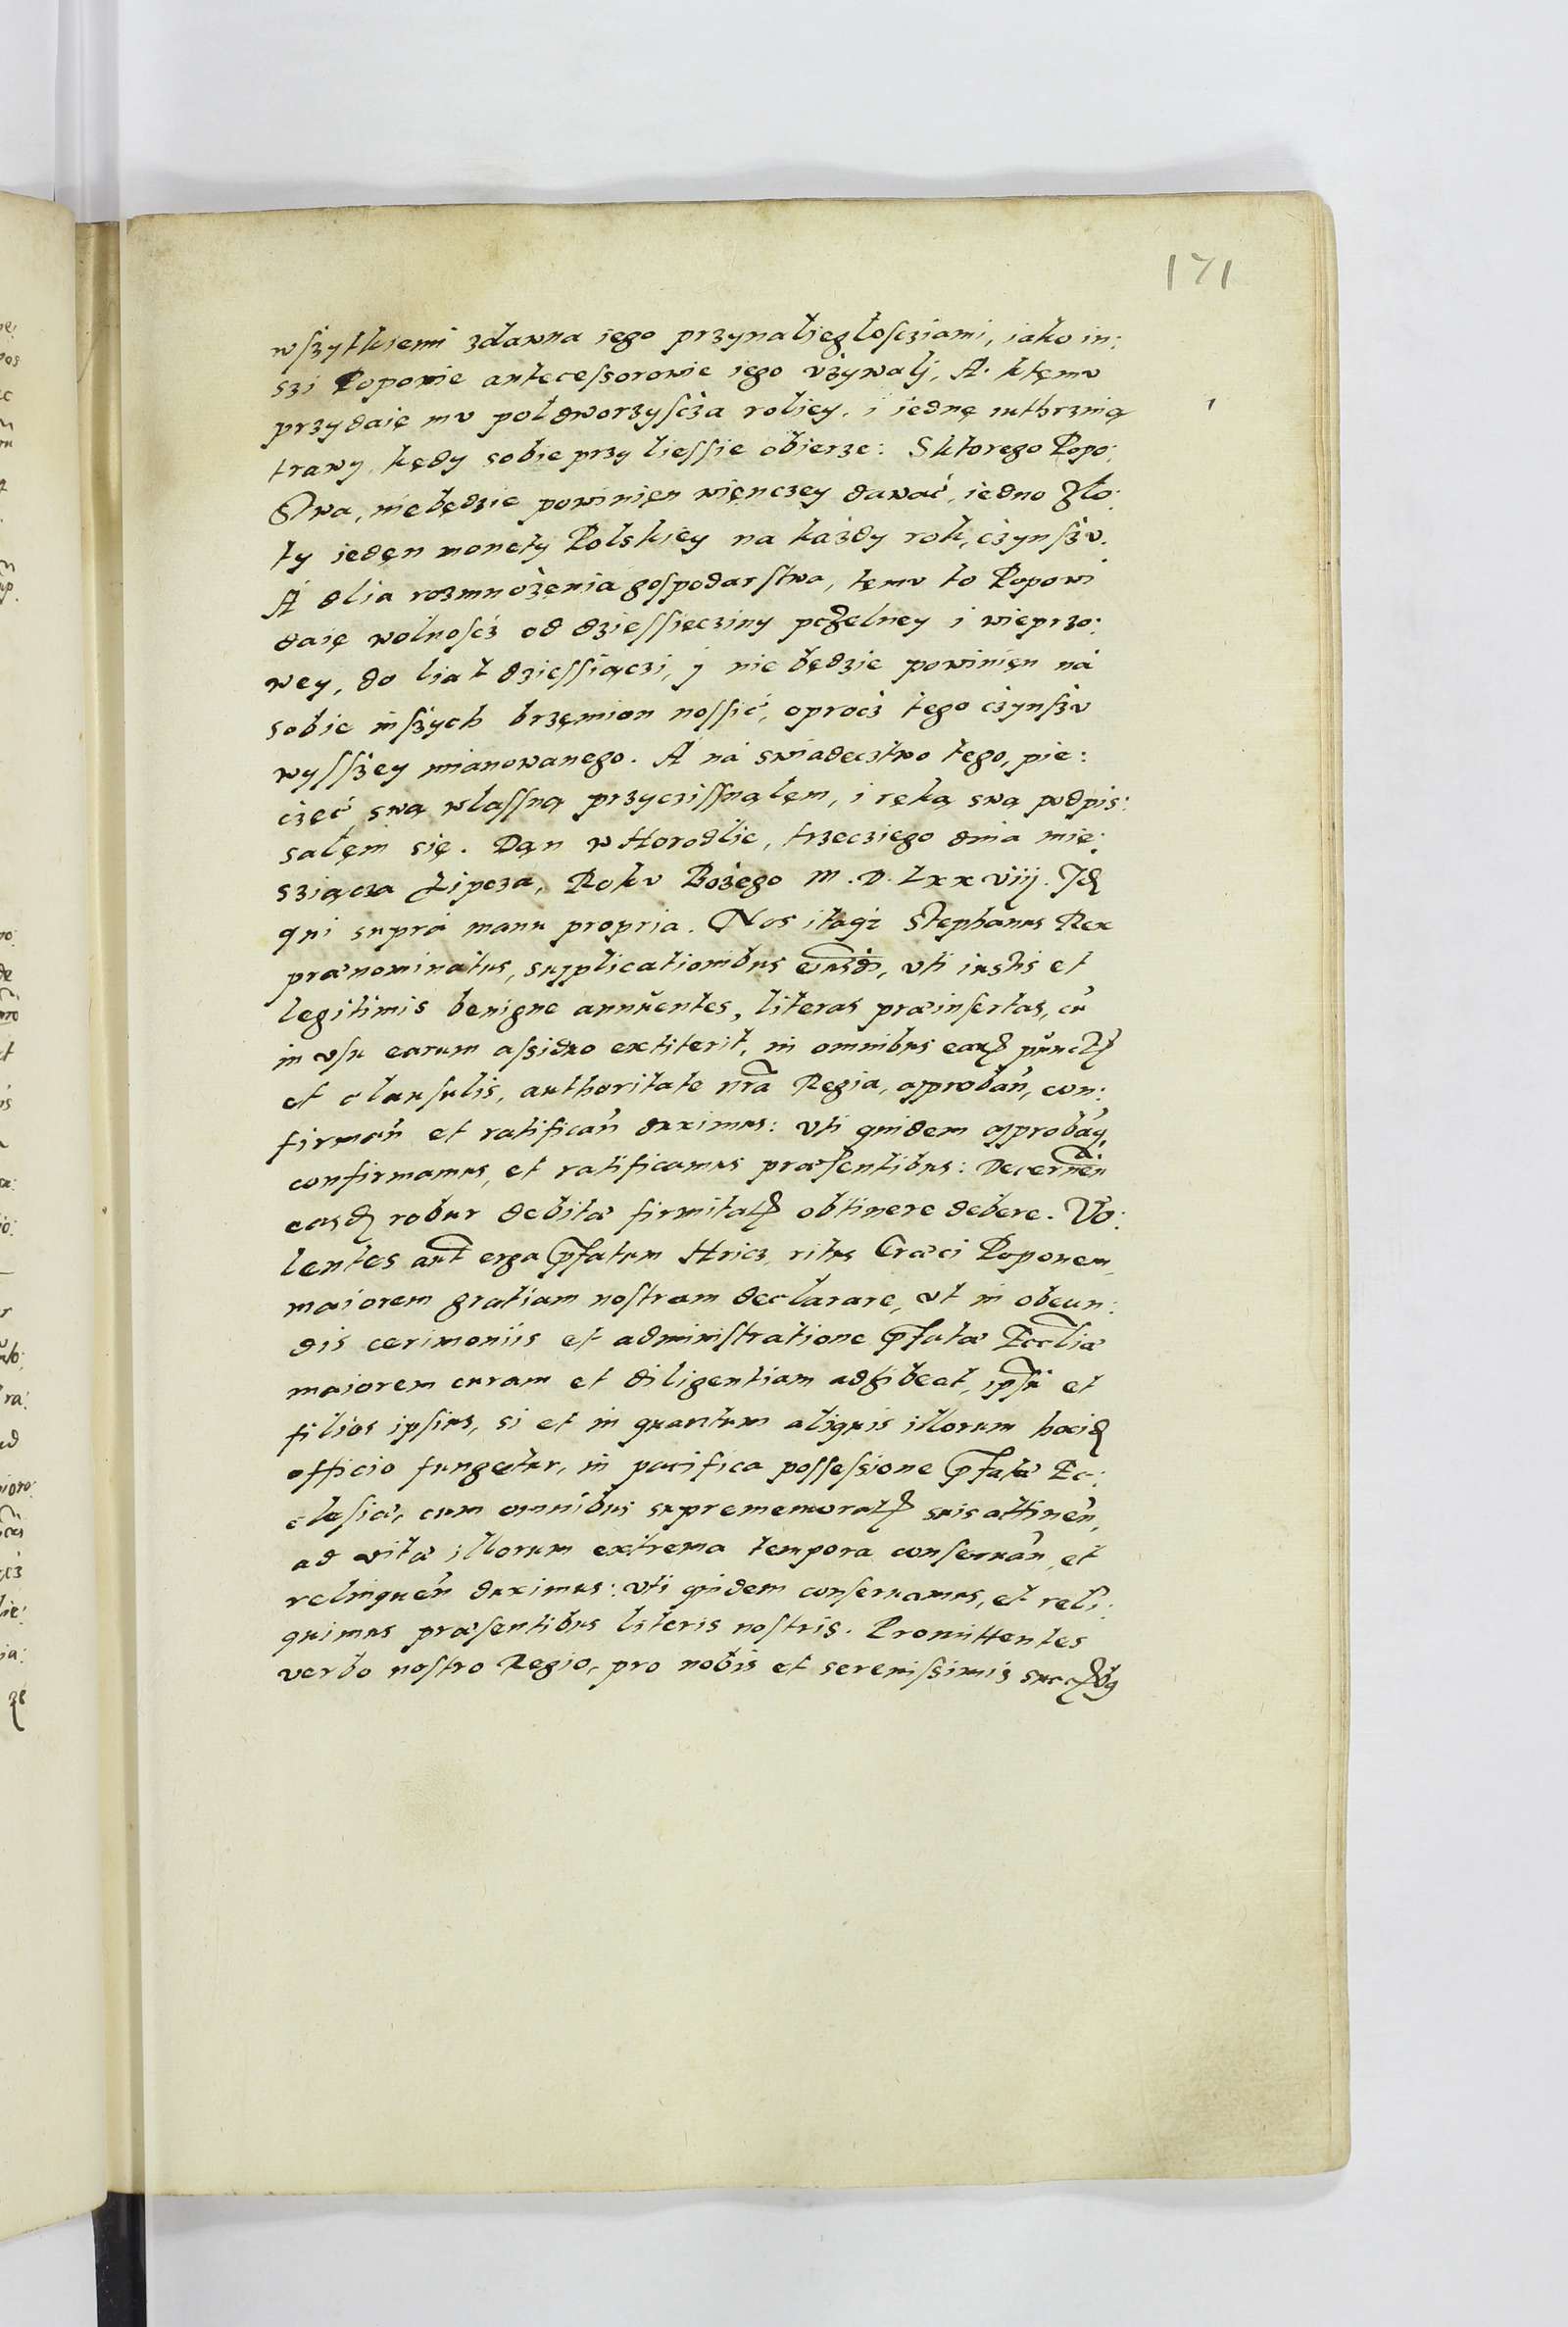 171
wszytkiemi zdawna iego przynaliegłosciami, iako in:
szi Popowie antecessorowie iego vżywalj. A. ktęmu
przydaię mv poł dworzyscża roliey, i iednę iuthrznią
trawy kędy sobie przy liessie obierze: Sktorego Popo:
stwa, niebędzie powinięn więnczey dawać, iedno zło:
ty iedęn monety Polskiey na każdy rok, cżynszv.
A dlia rozmnożęnia gospodarstwa, tęmv to Popowi
daię wolnoscż od dziessięcziny pczelney i wieprzo:
wey, do liat dziessiączi, j nie będzie powinięn ná
sobie inszych brzęmion nossić, oprocż tego cżynszv
wysszey mianowanego. A ná swiadecztwo tego, pie:
cżęć swą własną przyczissnąlęm, i ręką swą podpis:
salęm się. Dąn w Horodlie, trzecziego dnia mie:
sziącza Lipcza, Rokv Bożego M.D.Lxxviij. Id
qui suprá manu propria. Nos itaqz Stephanus Rex
prænominatus, supplicationibus eiusd, vti iustis et
legitimis benigne annuentes, literas præinsertas, cū
in vsu earum assiduo extiterit, in omnibus earꝝ punctꝭ
et clausulis, authoritate nrã Regia, approbañ, con:
firmañ et ratificañ duximus: vti quidem approbãꝯ,
confirmamus, et ratificamus præsentibus: Decerneñ
easdꝫ robur debitæ firmitatꝭ obtinere debere. Vo:
lentes aut erga pfatum Hricz, ritus Græci Poponem,
maiorem gratiam nostram declarare, vt in obeun:
dis cerimoniis et administratione pfatæ Eccliæ
maiorem curam et diligentiam adhibeat, ipsū et
filios ipsius, si et in quantum aliquis illorum
officio fungetur, in pacifica possessione pfatæ Ec:
clesiæ, cum omnibus suprememoratꝭ suis attineñ,
ad vitæ illorum extrema tempora conseruañ, et
relinqueñ duximus: vti quidem conseruamus, et reli:
quimus præsentibus literis nostris. Promittentes
verbo nostro Regio, pro nobis et serenissimis